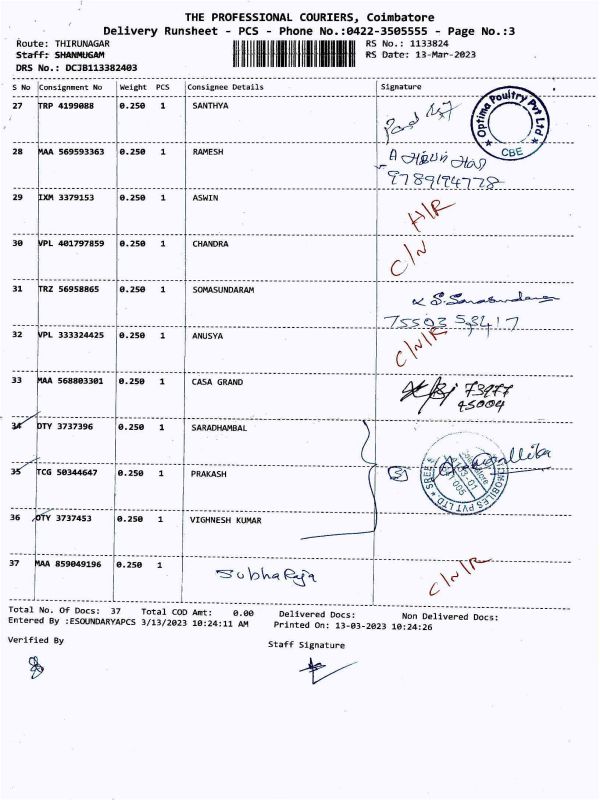 THE PROFESSIONAL COURIERS, Coimbatore
Delivery Runsheet - PCS - Phone No.:0422-3505555 - Page No.:3
Route: THIRUNAGAR RS No.: 1133824
Staff: SHANMUGAM RS Date: 13-Mar-2023
DRS No.: DCJB113382403
S No Consignment No Weight PCS Consignee Details Signature
27 TRP 4199088 0.250 1 SANTHYA
Optima Poultry Pvt Ltd
CBE
28 MAA 569593363 0.250 1 RAMESH
9789194778
29 IXM 3379153 0.250 1 ASWIN H/R
30 VPL 401797859 0.250 1 CHANDRA C/N
31 TRZ 56958865 0.250 1 SOMASUNDARAM
75503 53417
32 VPL 333324425 0.250 1 ANUSYA C/N/R
33 MAA 568803301 0.250 1 CASA GRAND 73977
95004
34 DTY 3737396 0.250 1 SARADHAMBAL
35 TCG 50344647 0.250 1 PRAKASH
36 DTY 3737453 0.250 1 VIGHNESH KUMAR
37 MAA 859049196 0.250 1 Subha Raja C/N/R
Total No. Of Docs: 37 Total COD Amt: 0.00 Delivered Docs: Non Delivered Docs:
Entered By :ESOUNDARYAPCS 3/13/2023 10:24:11 AM Printed On: 13-03-2023 10:24:26
Verified By Staff Signature